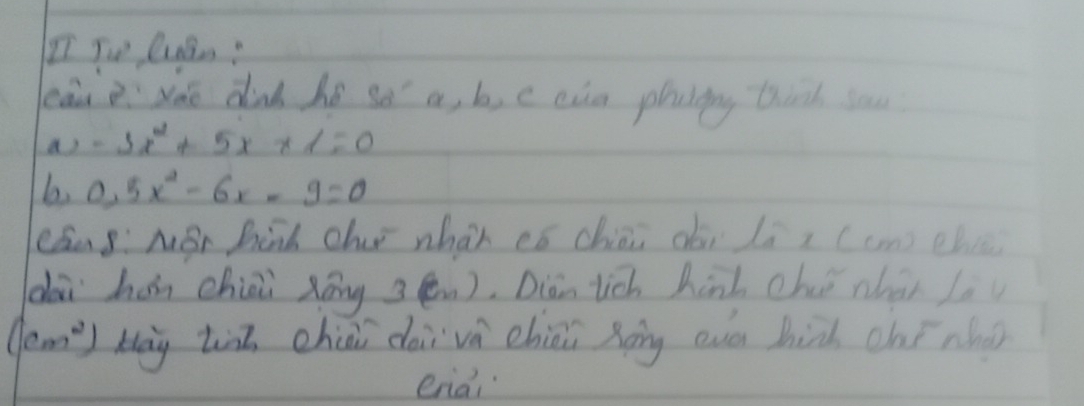 II Tự luận:
câu 2: xác định hệ số a, b, c của phương trình sau:
a, -3x² + 5x + 1 = 0
b, 0,5x² - 6x - 9 = 0
câu 8: Một hình chữ nhật có chiều dài là x (cm) chiều
dài hơn chiều rộng 3 (cm). Diện tích hình chữ nhật là
(cm²) Hãy tính chiều dài và chiều rộng của hình chữ nhật
Giải: